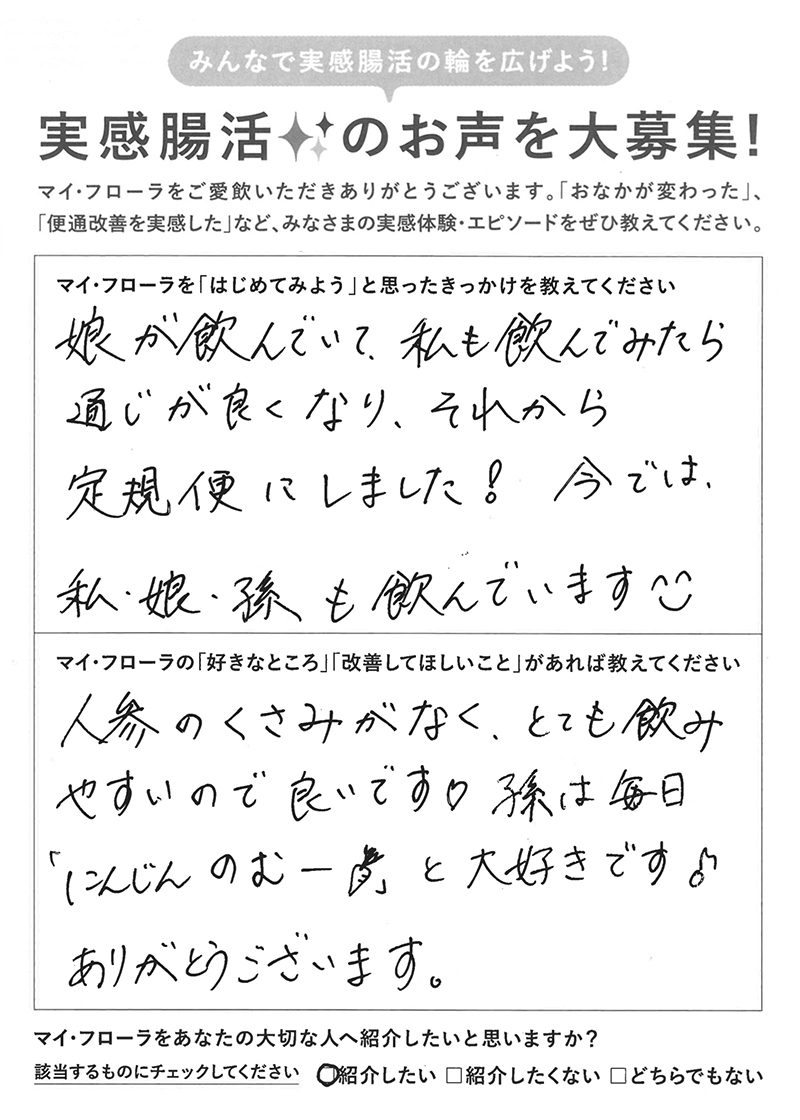 みんなで実感腸活の輪を広げよう!
実感腸活のお声を大募集!
マイ・フローラをご愛飲いただきありがとうございます。「おなかが変わった」、
「便通改善を実感した」など、みなさまの実感体験・エピソードをぜひ教えてください。
マイ・フローラを「はじめてみよう」と思ったきっかけを教えてください
娘が飲んでいて、私も飲んでみたら
通じが良くなり、それから
定規便にしました! 今では、
私・娘・孫も飲んでいます^^
マイ・フローラの「好きなところ」「改善してほしいこと」があれば教えてください
人参のくさみがなく、とても飲み
やすいので良いです♡ 孫は毎日
「にんじんのむー」と大好きです♪
ありがとうございます。
マイ・フローラをあなたの大切な人へ紹介したいと思いますか?
該当するものにチェックしてください □紹介したい □紹介したくない □どちらでもない